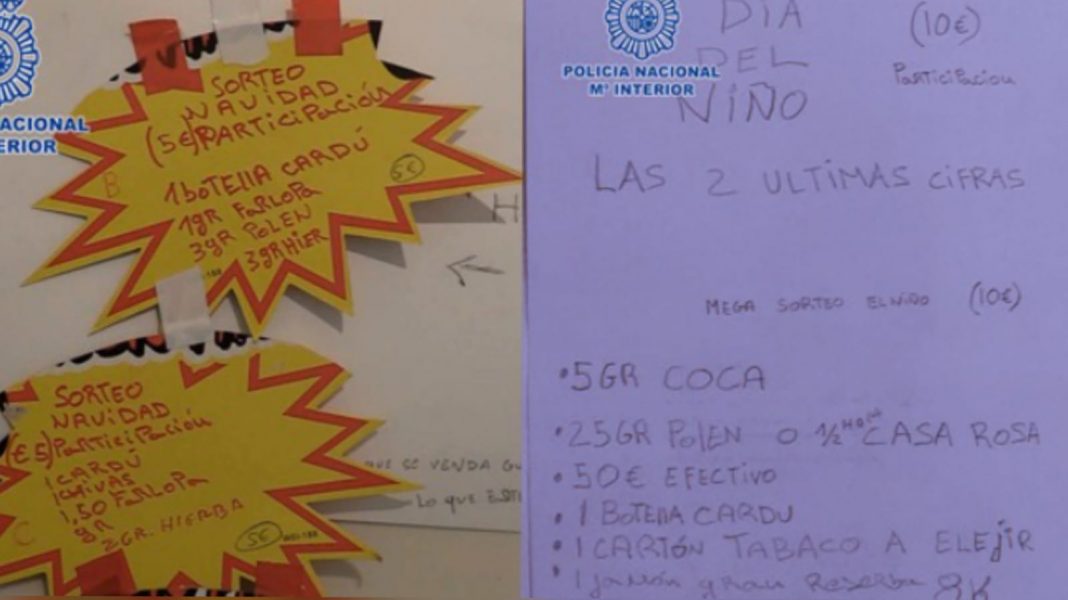 NACIONAL
ERIOR
SORTEO
NAVIDAD
(5€) PARTICIPACIÓN
1 BOTELLA CARDÚ
1gR FARLOPA
3gR POLEN
3gRHIER
B
5€
H
SORTEO
NAVIDAD
(€5) PARTICIPACIÓN
1 CARDÚ
1 CHIVAS
1,50 FARLOPA
gR
2GR. HIERBA
C
5€
SE VENDA
Lo que
POLICIA NACIONAL
Mº INTERIOR
DIA
DEL
NIÑO
(10€)
PARTICIPACION
LAS 2 ULTIMAS CIFRAS
MEGA SORTEO EL NIÑO (10€)
•5GR COCA
•25GR POLEN O 1/2 CASA ROSA
•50€ EFECTIVO
•1 BOTELLA CARDU
•1 CARTÓN TABACO A ELEJIR
•1 JAMÓN gran Reserva 8K